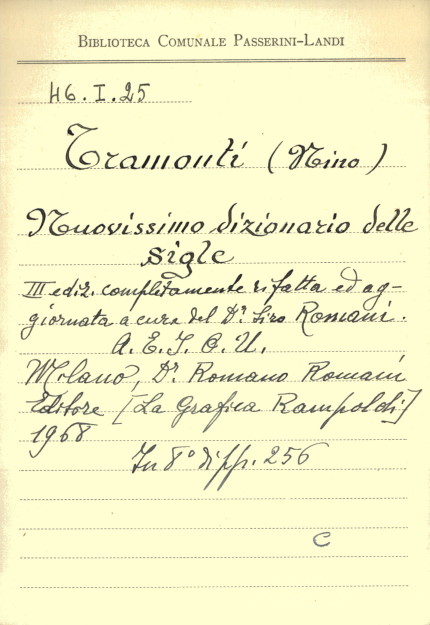 BIBLIOTECA COMUNALE PASSERINI-LANDI
46.I.25
Tramonti (Nino)
Nuovissimo dizionario delle
sigle
III ediz. completamente rifatta ed ag-
giornata a cura del Dr. Siro Romani.
A. E. I. O. U.
Milano, Dr. Romano Romani
Editore [La Grafica Rampoldi]
1968
In 8° di pp. 256
C